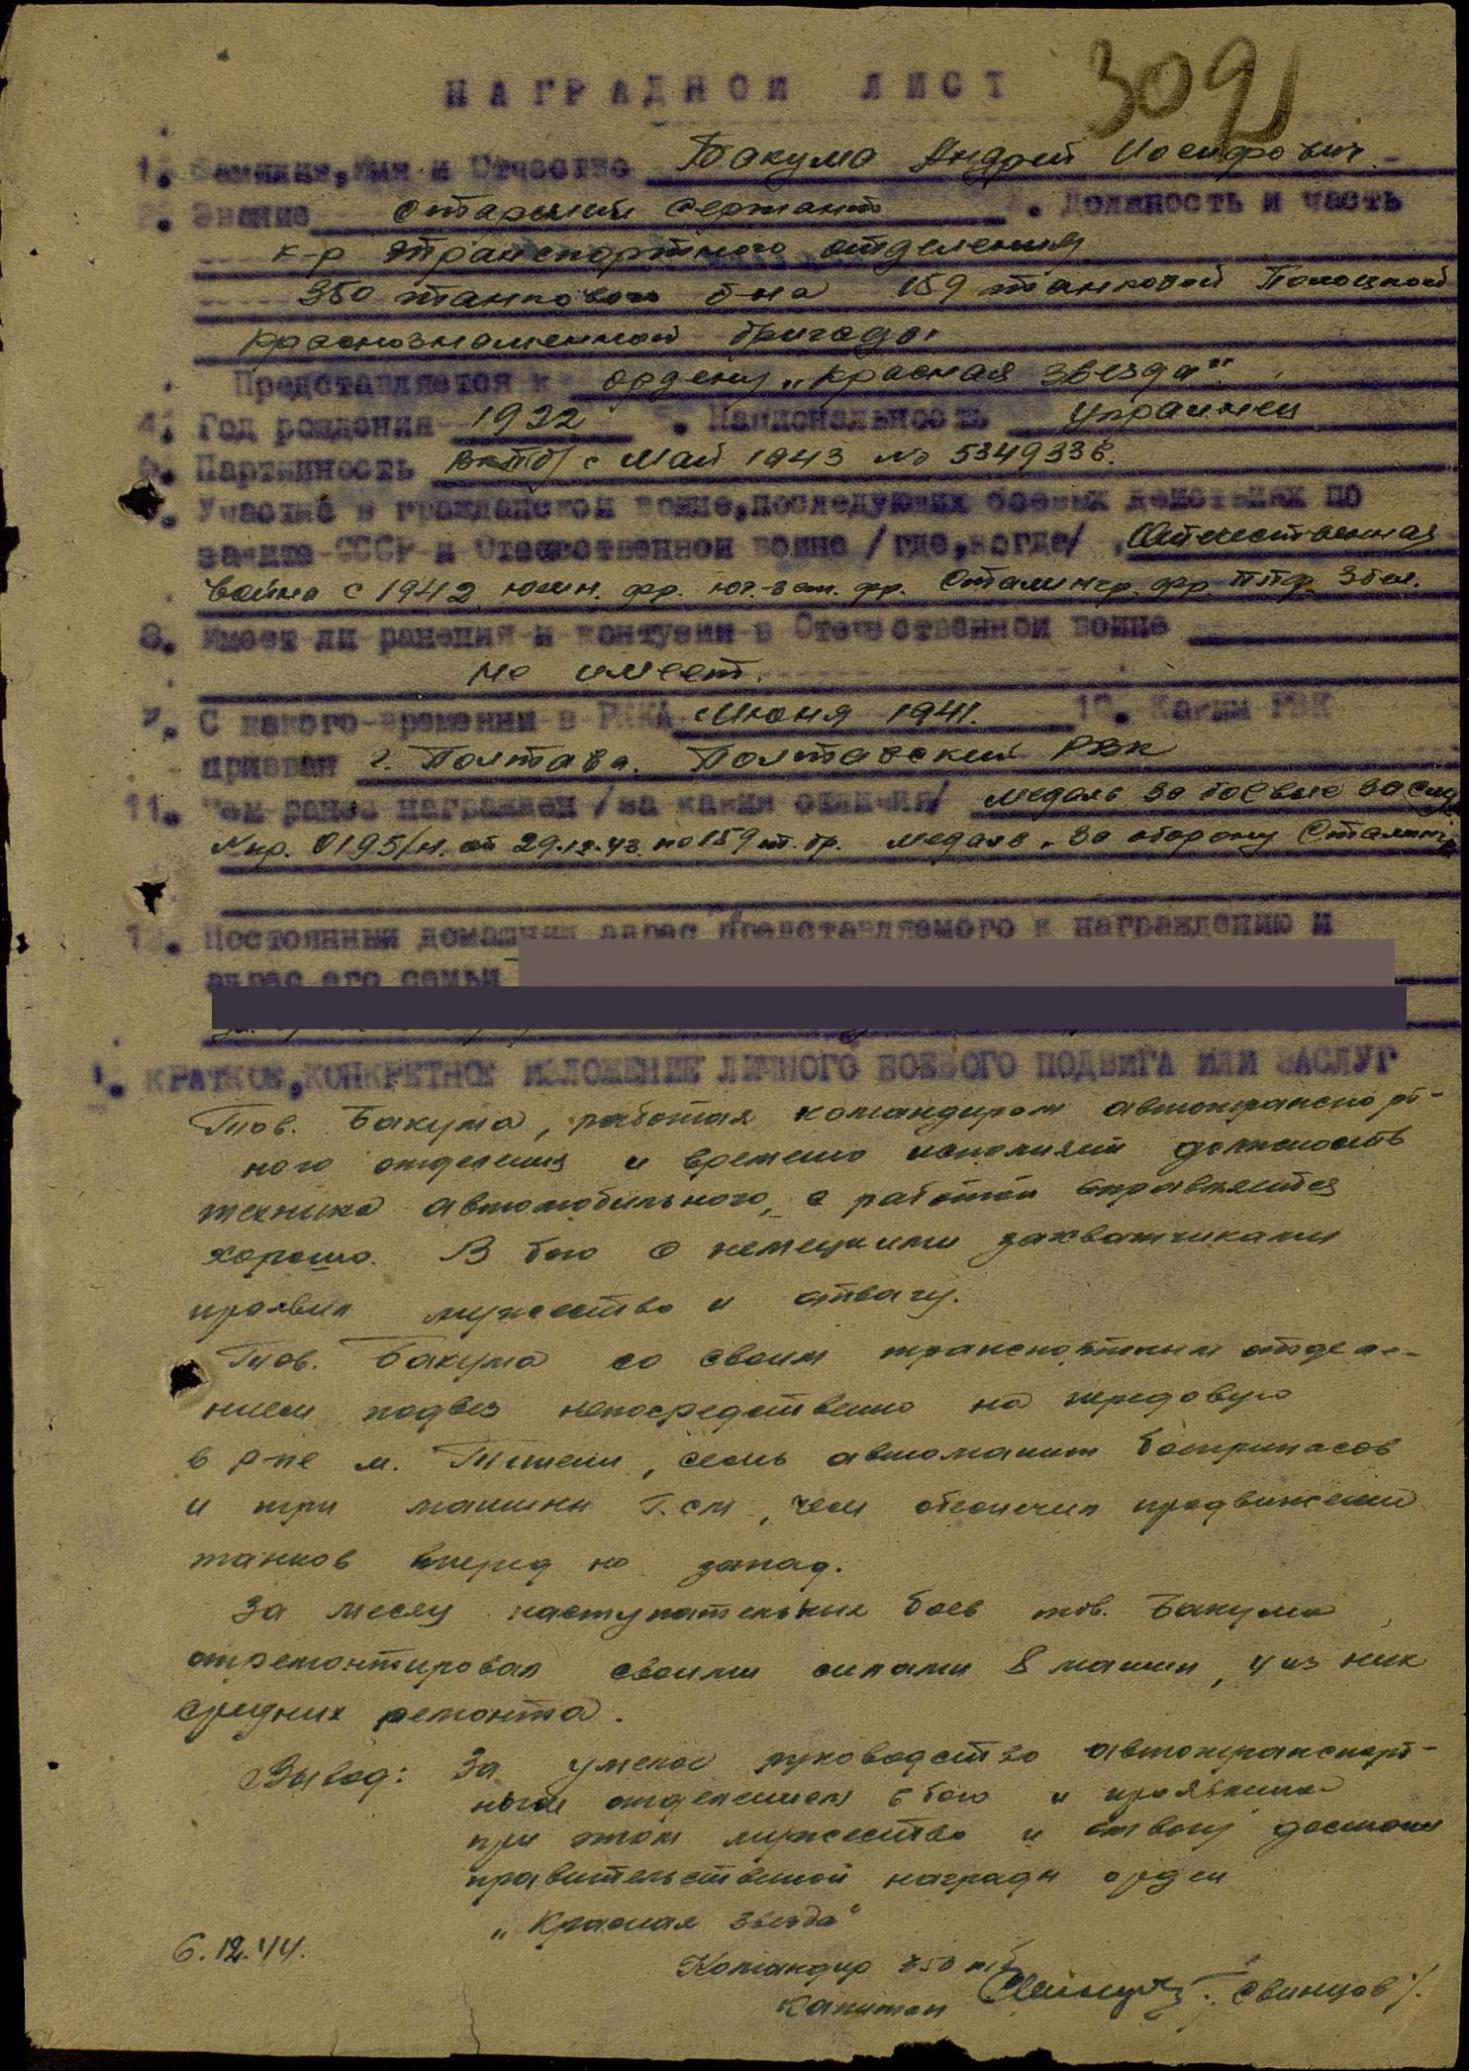 309
НАГРАДНОЙ ЛИСТ
1. Фамилия, Имя и Отчество Бакума Андрей Иосифович.
2. Звание Старший сержант . Должность и часть
к-р транспортного отделения
350 танкового б-на 159 танковой Полоцкой
краснознаменной бригады.
Представляется к ордену „Красная звезда".
4. Год рождения 1922 . Национальность украинец
Партийность ВКП(б) с Май 1943 №
. Участие в гражданской войне, последующих боевых действиях по
защите СССР и Отечественной войне /где, когда/ , Отечественная
война с 1942 южн. фр. юг.-зап. фр. Сталингр. фр. 3 бел.
8. Имеет ли ранения и контузии в Отечественной войне
не имеет.
. С какого времени в РККА Июня 1941. 10. Каким РВК
призван г. Полтава. Полтавский РВК
11. Чем ранее награжден /за какие отличия/ медаль за боевые заслуг
пр. 0195/н. от 29.12.43. по 159 т. бр. медаль „За оборону Сталингр
12. Постоянный домашний адрес представляемого к награждению и
адрес его семьи
1. КРАТКОЕ, КОНКРЕТНОЕ ИЗЛОЖЕНИЕ ЛИЧНОГО БОЕВОГО ПОДВИГА ИЛИ ЗАСЛУГ
Тов. Бакума, работая командиром автотранспорт-
ного отделения и временно исполняет должность
техника автомобильного, с работой справляется
хорошо. В бою с немецкими захватчиками
проявил мужество и отвагу.
Тов. Бакума со своим транспортным отделе-
нием подвез непосредственно на передовую
в р-не м. , семь автомашин боеприпасов
и три машины Г.см, чем обеспечил продвижение
танков вперед на запад.
За месяц наступательных боев тов. Бакума
отремонтировал своими силами 8 машин, 4 из них
средних ремонта.
Вывод: За умелое руководство автотранспорт-
ным отделением в бою и проявление
при этом мужество и отвагу достоин
правительственной награды орден
„Красная звезда"
6.12.44.
Командир 350 тб
капитан /Свинцов/.